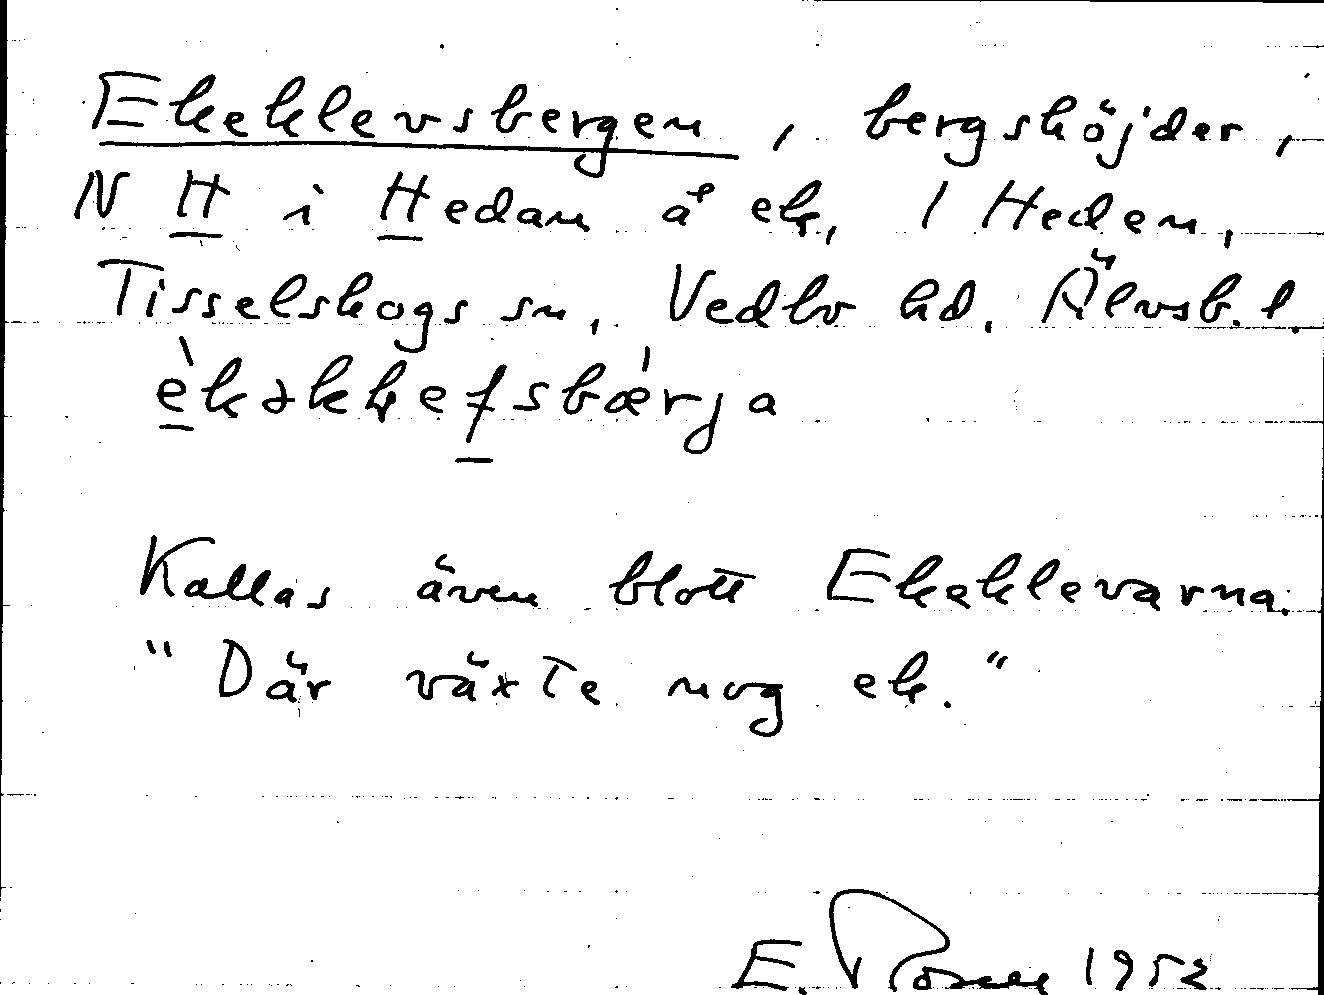 Ekeklevsbergen, bergshöjder,
N H i Hedan å ek, 1 Heden,
Tisselskogs sn, Vedbo hd. Älvsb. l.
Kallas även blott Ekeklevarna.
"Där växte nog ek."
E. 1952